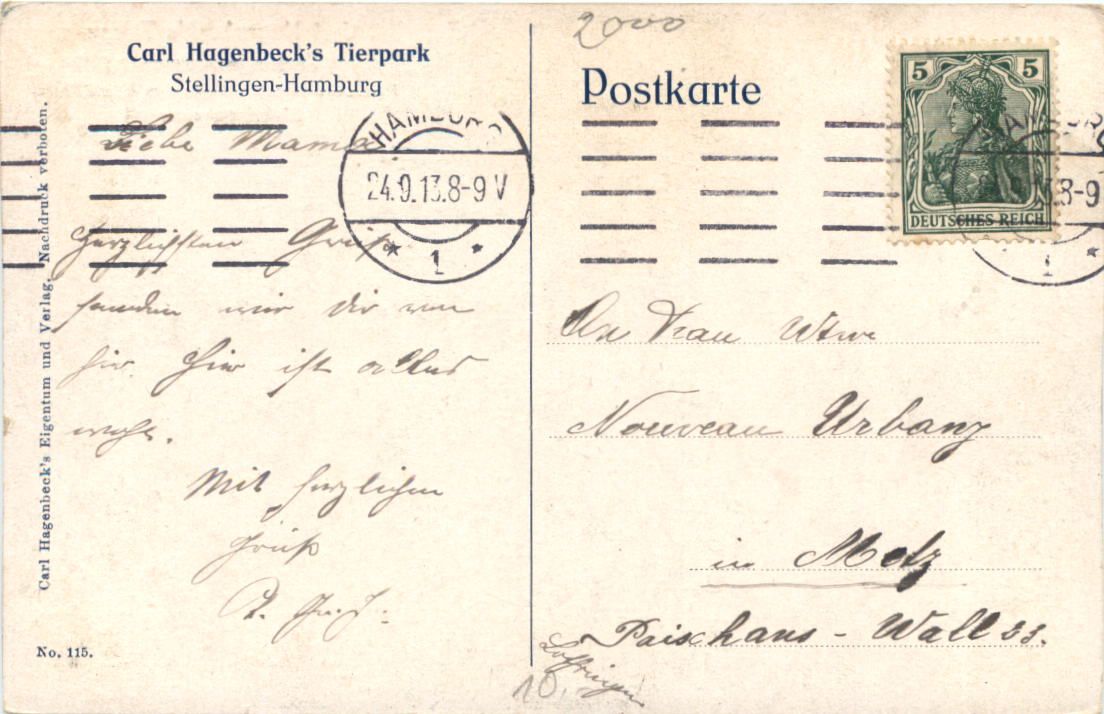 2000
Carl Hagenbeck's Tierpark
Stellingen-Hamburg
Postkarte
5 5
DEUTSCHES REICH
HAMBURG
24.9.13.8-9 V
* 1 *
Liebe Mama
Herzlichsten Gruß
senden wir dir von
hir. Hier ist alles
wohl.
Mit herzlichem
Gruß
An Frau Wtwe
Nouveau Urbany
in Metz
Wall 33.
Lothringen
10.
Carl Hagenbeck's Eigentum und Verlag. Nachdruck verboten.
No. 115.